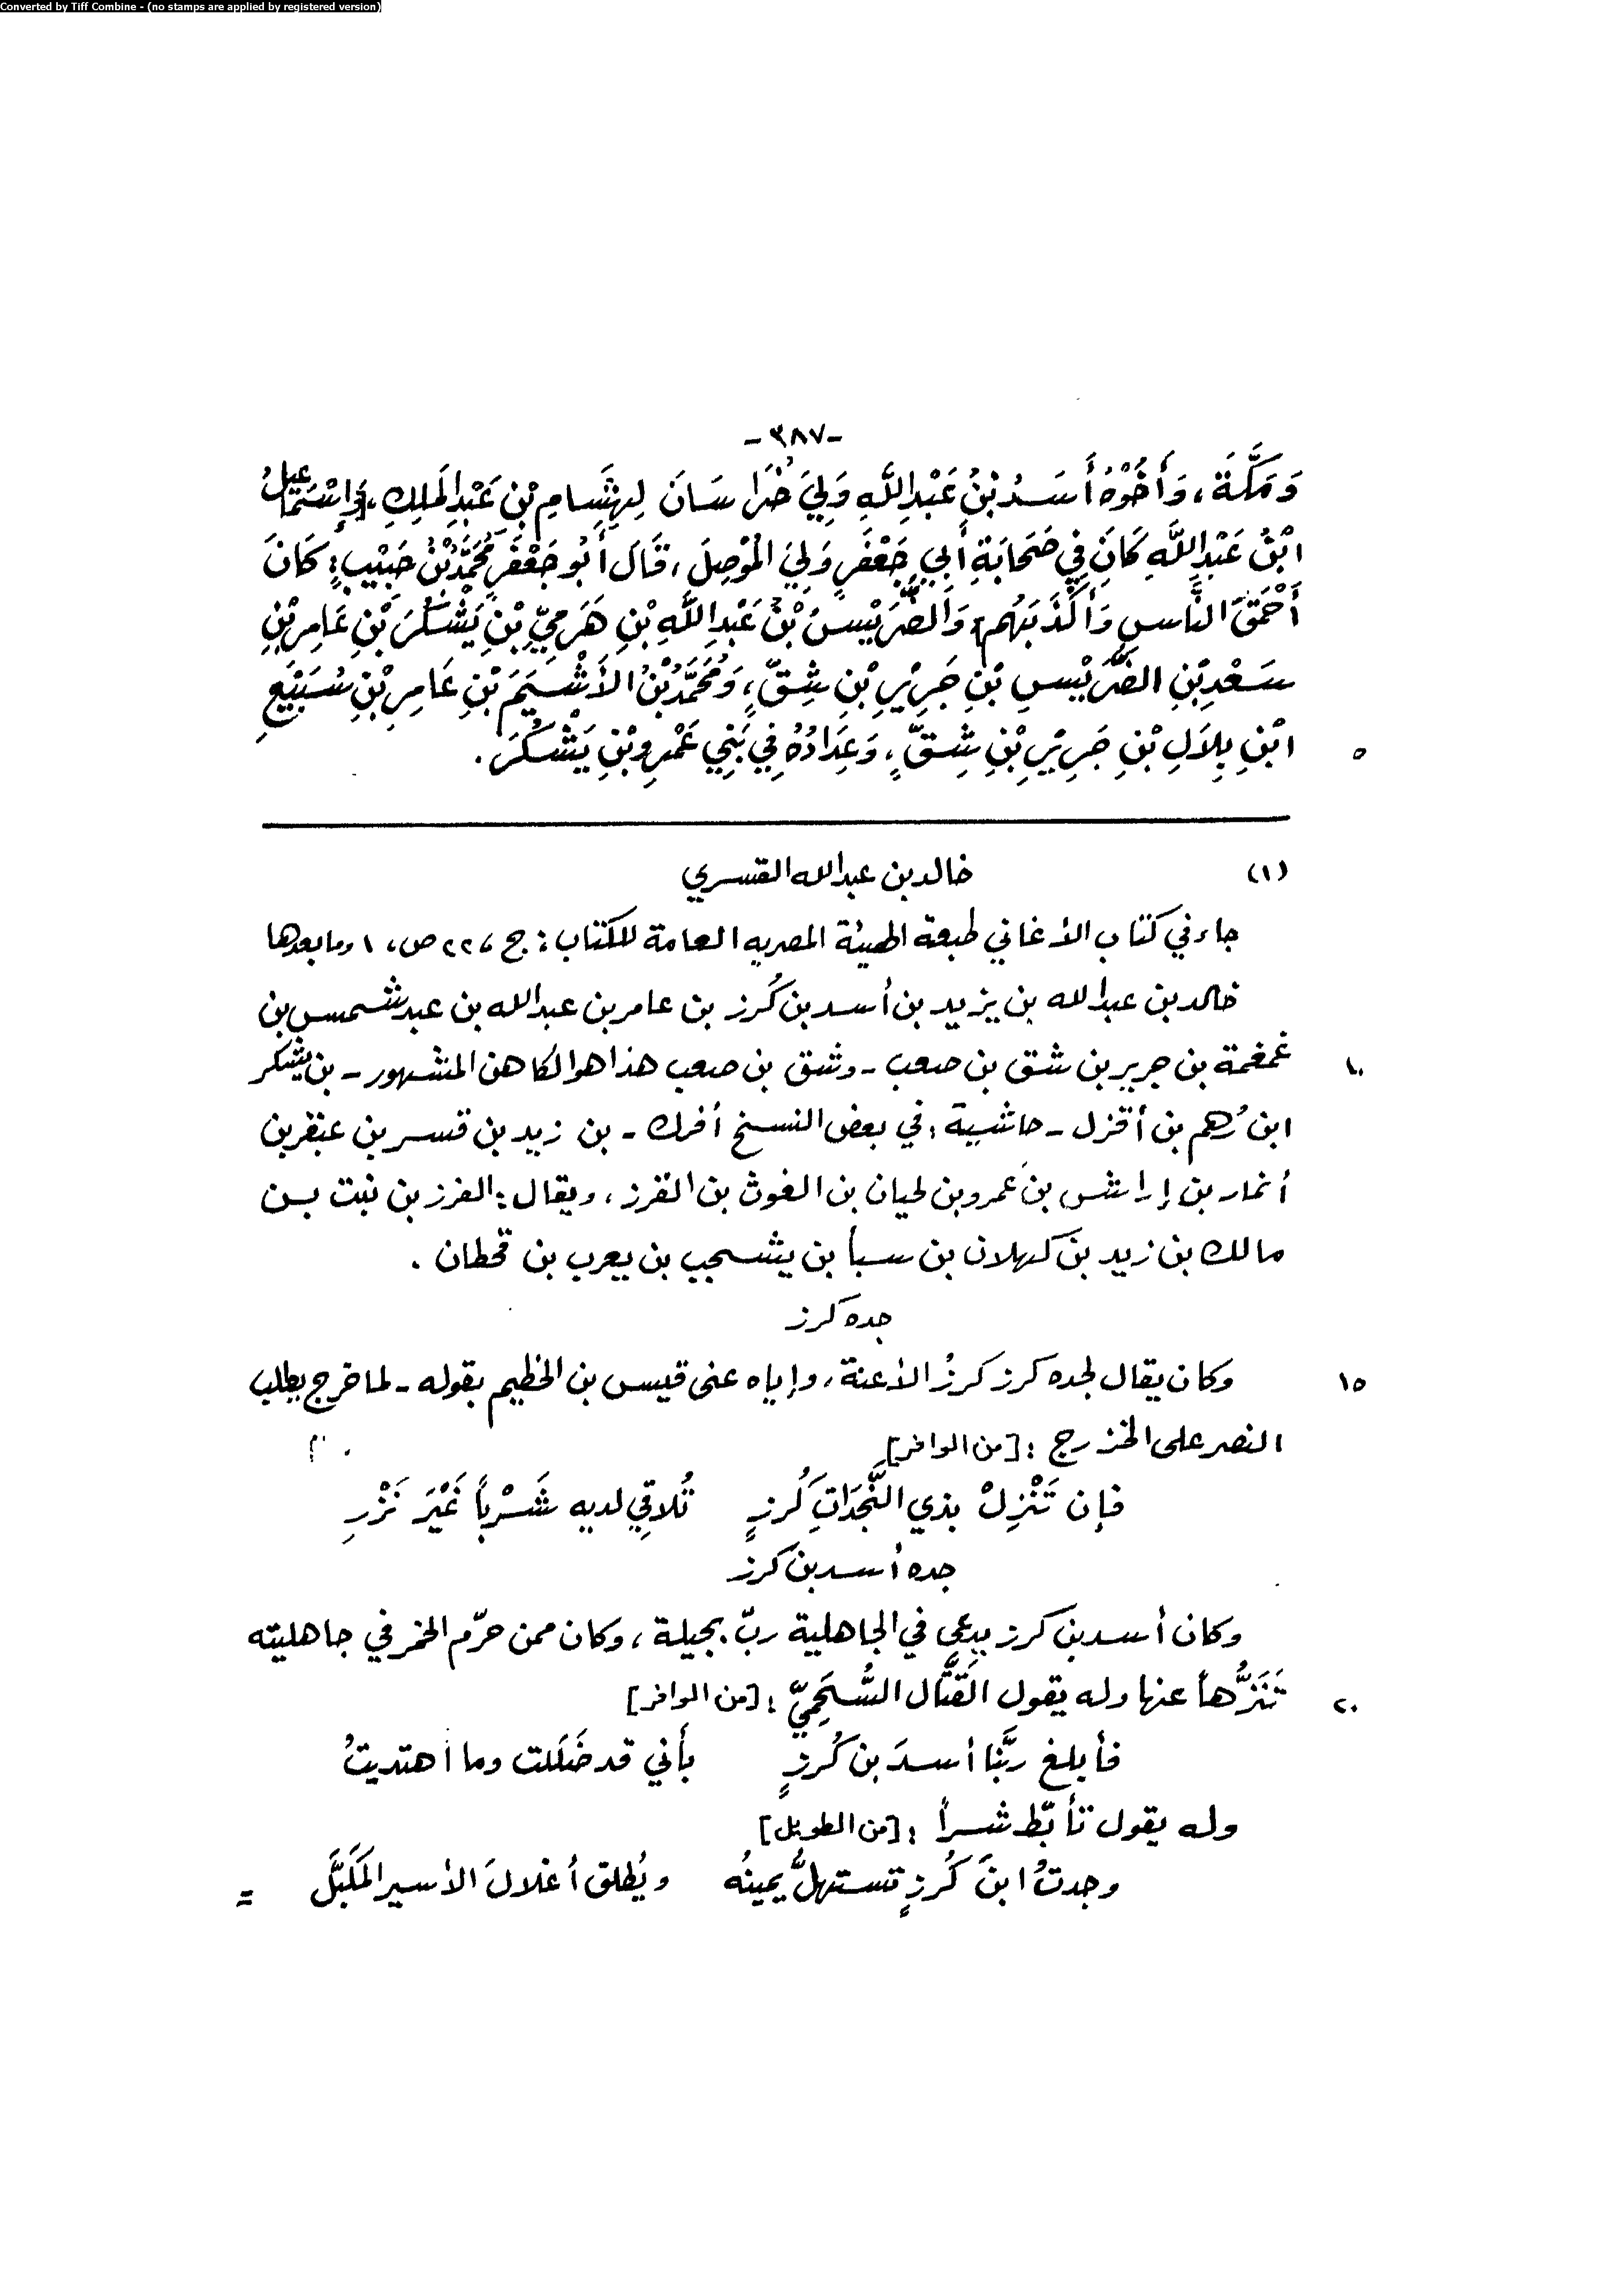 Converted by Tiff Combine - (no stamps are applied by registered version)
-٣٨٧-
وَمَكَّةَ، وَأَخُوْهُ أَسَدُ بْنُ عَبْدِ اللَّهِ وَلِيَ خُرَاسَانَ لِهِشَامِ بْنِ عَبْدِ الْمَلِكِ، وَإِسْمَاعِيلُ
ابْنُ عَبْدِ اللَّهِ كَانَ فِي صَحَابَةِ أَبِي جَعْفَرٍ وَلِيَ الْمَوْصِلَ، قَالَ أَبُو جَعْفَرٍ مُحَمَّدُ بْنُ حَبِيْبٍ: كَانَ
أَحْمَقَ النَّاسِ وَأَكْذَبَهُم، وَالضُّرَيْسُ بْنُ عَبْدِ اللَّهِ بْنِ هَرَمِيِّ بْنِ يَشْكُرَ بْنِ عَامِرِ بْنِ
سَعْدِ بْنِ الضُّرَيْسِ بْنِ جَرِيْرِ بْنِ شِقٍّ، وَمُحَمَّدُ بْنُ الأَشْيَمِ بْنِ عَامِرِ بْنِ سُبَيْعِ
ابْنِ بِلَالِ بْنِ جَرِيْرِ بْنِ شِقٍّ، وَعِدَادُهُ فِي بَنِي عَمْرِو بْنِ يَشْكُرَ.
٥
(١) خالد بن عبد الله القسري
جاء في كتاب الأغاني طبعة الهيئة المصرية العامة للكتاب: ج ٢٢، ص، ١ وما بعدها
خالد بن عبد الله بن يزيد بن أسد بن كُرز بن عامر بن عبد الله بن عبد شمس بن
غمغمة بن جرير بن شق بن صعب - وشق بن صعب هذا هو الكاهن المشهور - بن يشكر
١٠
ابن رُهم بن أقزل - حاشية: في بعض النسخ أفرك - بن زيد بن قسر بن عبقر بن
أنمار بن إراش بن عمرو بن لحيان بن الغوث بن الفرز، ويقال: الفرز بن نبت بن
مالك بن زيد بن كهلان بن سبأ بن يشجب بن يعرب بن قحطان.
جده كرز
وكان يقال لجده كرز كرزُ الأعنة، وإياه عنى قيس بن الخطيم بقوله - لما خرج يطلب
١٥
النصر على الخزرج: [من الوافر]
فإن تَنْزِلْ بذي النَّجَدَاتِ كُرزٍ تُلاقِي لديه شَرْباً غَيْرَ نَزْرِ
جده أسد بن كرز
وكان أسد بن كرز يدعى في الجاهلية ربّ بجيلة، وكان ممن حرّم الخمر في جاهليته
تَنَزُّهاً عنها وله يقول القَتَّال السُّحَمِيّ: [من الوافر]
٢٠
فأبلغ ربَّنا أسدَ بن كُرزٍ بأني قد ضَلَلت وما اهتديتُ
وله يقول تأبّط شراً: [من الطويل]
وجدتُ ابنَ كُرزٍ تستهلُّ يمينُه ويُطلق أغلالَ الأسير المَكَبَّلَ =